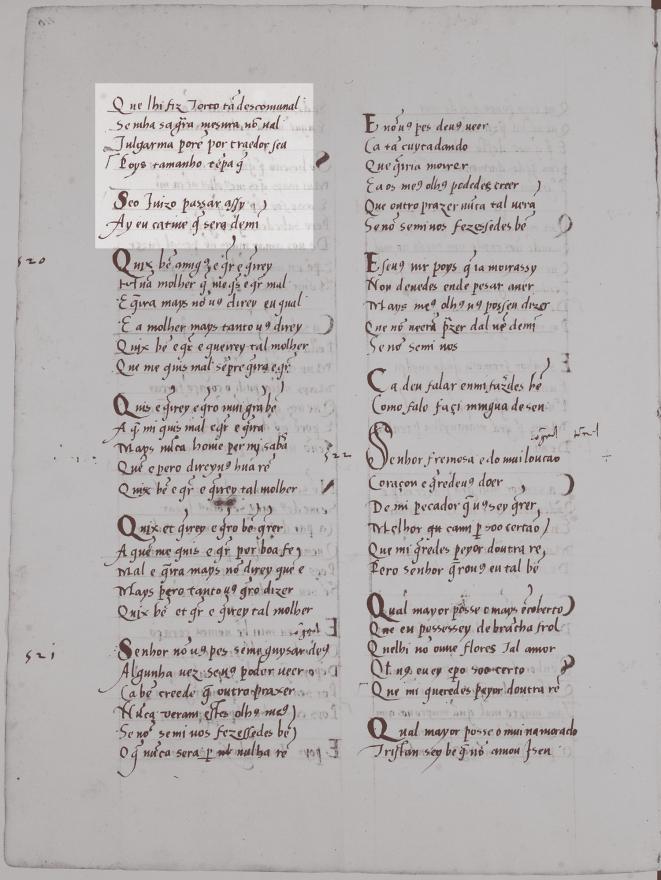 Que lhi fiz Torto tã descomunal
Se mha sa gr̃a mesura nõ ual
Julgarma porẽ por traedor sea
Poys tamanho tẽpa q̃
Seo Juizo passar assy
Ay eu catiue q̃ sera demi
520
Quix bẽ amigꝯ e qr̃ e q̃irey
hũna molher q̃ me qꝯ e qr̃ mal
E q̃ira mays nõ uꝯ direy eu qual
E a molher mays tanto uꝯ direy
Quix bẽ e qr̃ e queirey tal molher
Que me quis mal sẽpre q̃ira e qr̃
Quis e q̃irey e qro mui grã bẽ
A q̃ mi quis mal e qr̃ e q̃ira
Mays nũca home per mj saba
Quẽ e pero direyuꝯ hũa rẽ
Quix bẽ e qr̃ e q̃irey tal molher
Quix et q̃irey e qr̃o bẽ qr̃er
A que me quis e qr̃ por boa fe
Mal e q̃ira mays nõ direy que e
Mays pero tanto uꝯ qro dizer
Quix bẽ et qr̃ e q̃irey tal molher
521
Senhor nõ uꝯ pes seme guysar deꝯ
Algunha uez seuꝯ poder ueer
Ca bẽ creede q̃ outro praxer
Nũca ueram estes olhꝯ meꝯ
Se nõ semi uos fezessedes bẽ
O q̃ nũca sera per nulha rẽ
E nõ uꝯ pes deuꝯ ueer
Ca tã cuyctadando
Que q̃iria moirer
E aos meꝯ olhꝯ podedes creer
Que outro prazer nũca tal uera
Se nõ semi uos fezessedes bẽ
E seuꝯ uir poys q̃ ia moirassy
Non deuedes ende pesar auer
Mays meꝯ olhꝯ uꝯ possen dizer
Que nõ ueerã p̃zer dal uẽ demi
Se nõ semi uos
Ca deu falar enmi fazdes bẽ
Como falo façi mingua de sen
522
Senhor fremosa e do mui loucão
Coraçon e q̃redeuꝯ doer
De mi pecador q̃ uꝯ sey q̃rer
Melhor
Que mi q̃redes peyor doutra rẽ
Pero senhor qrouꝯ eu tal bẽ
Qual mayor posse o mays ẽcoberto
Que eu possessey de bracha frol
Quelhi no ouue flores Tal amor
Que mi queredes peyor doutra rẽ
Qual mayor posse o mui namorado
Tristan sey bẽ q̃ nõ amou Jsen